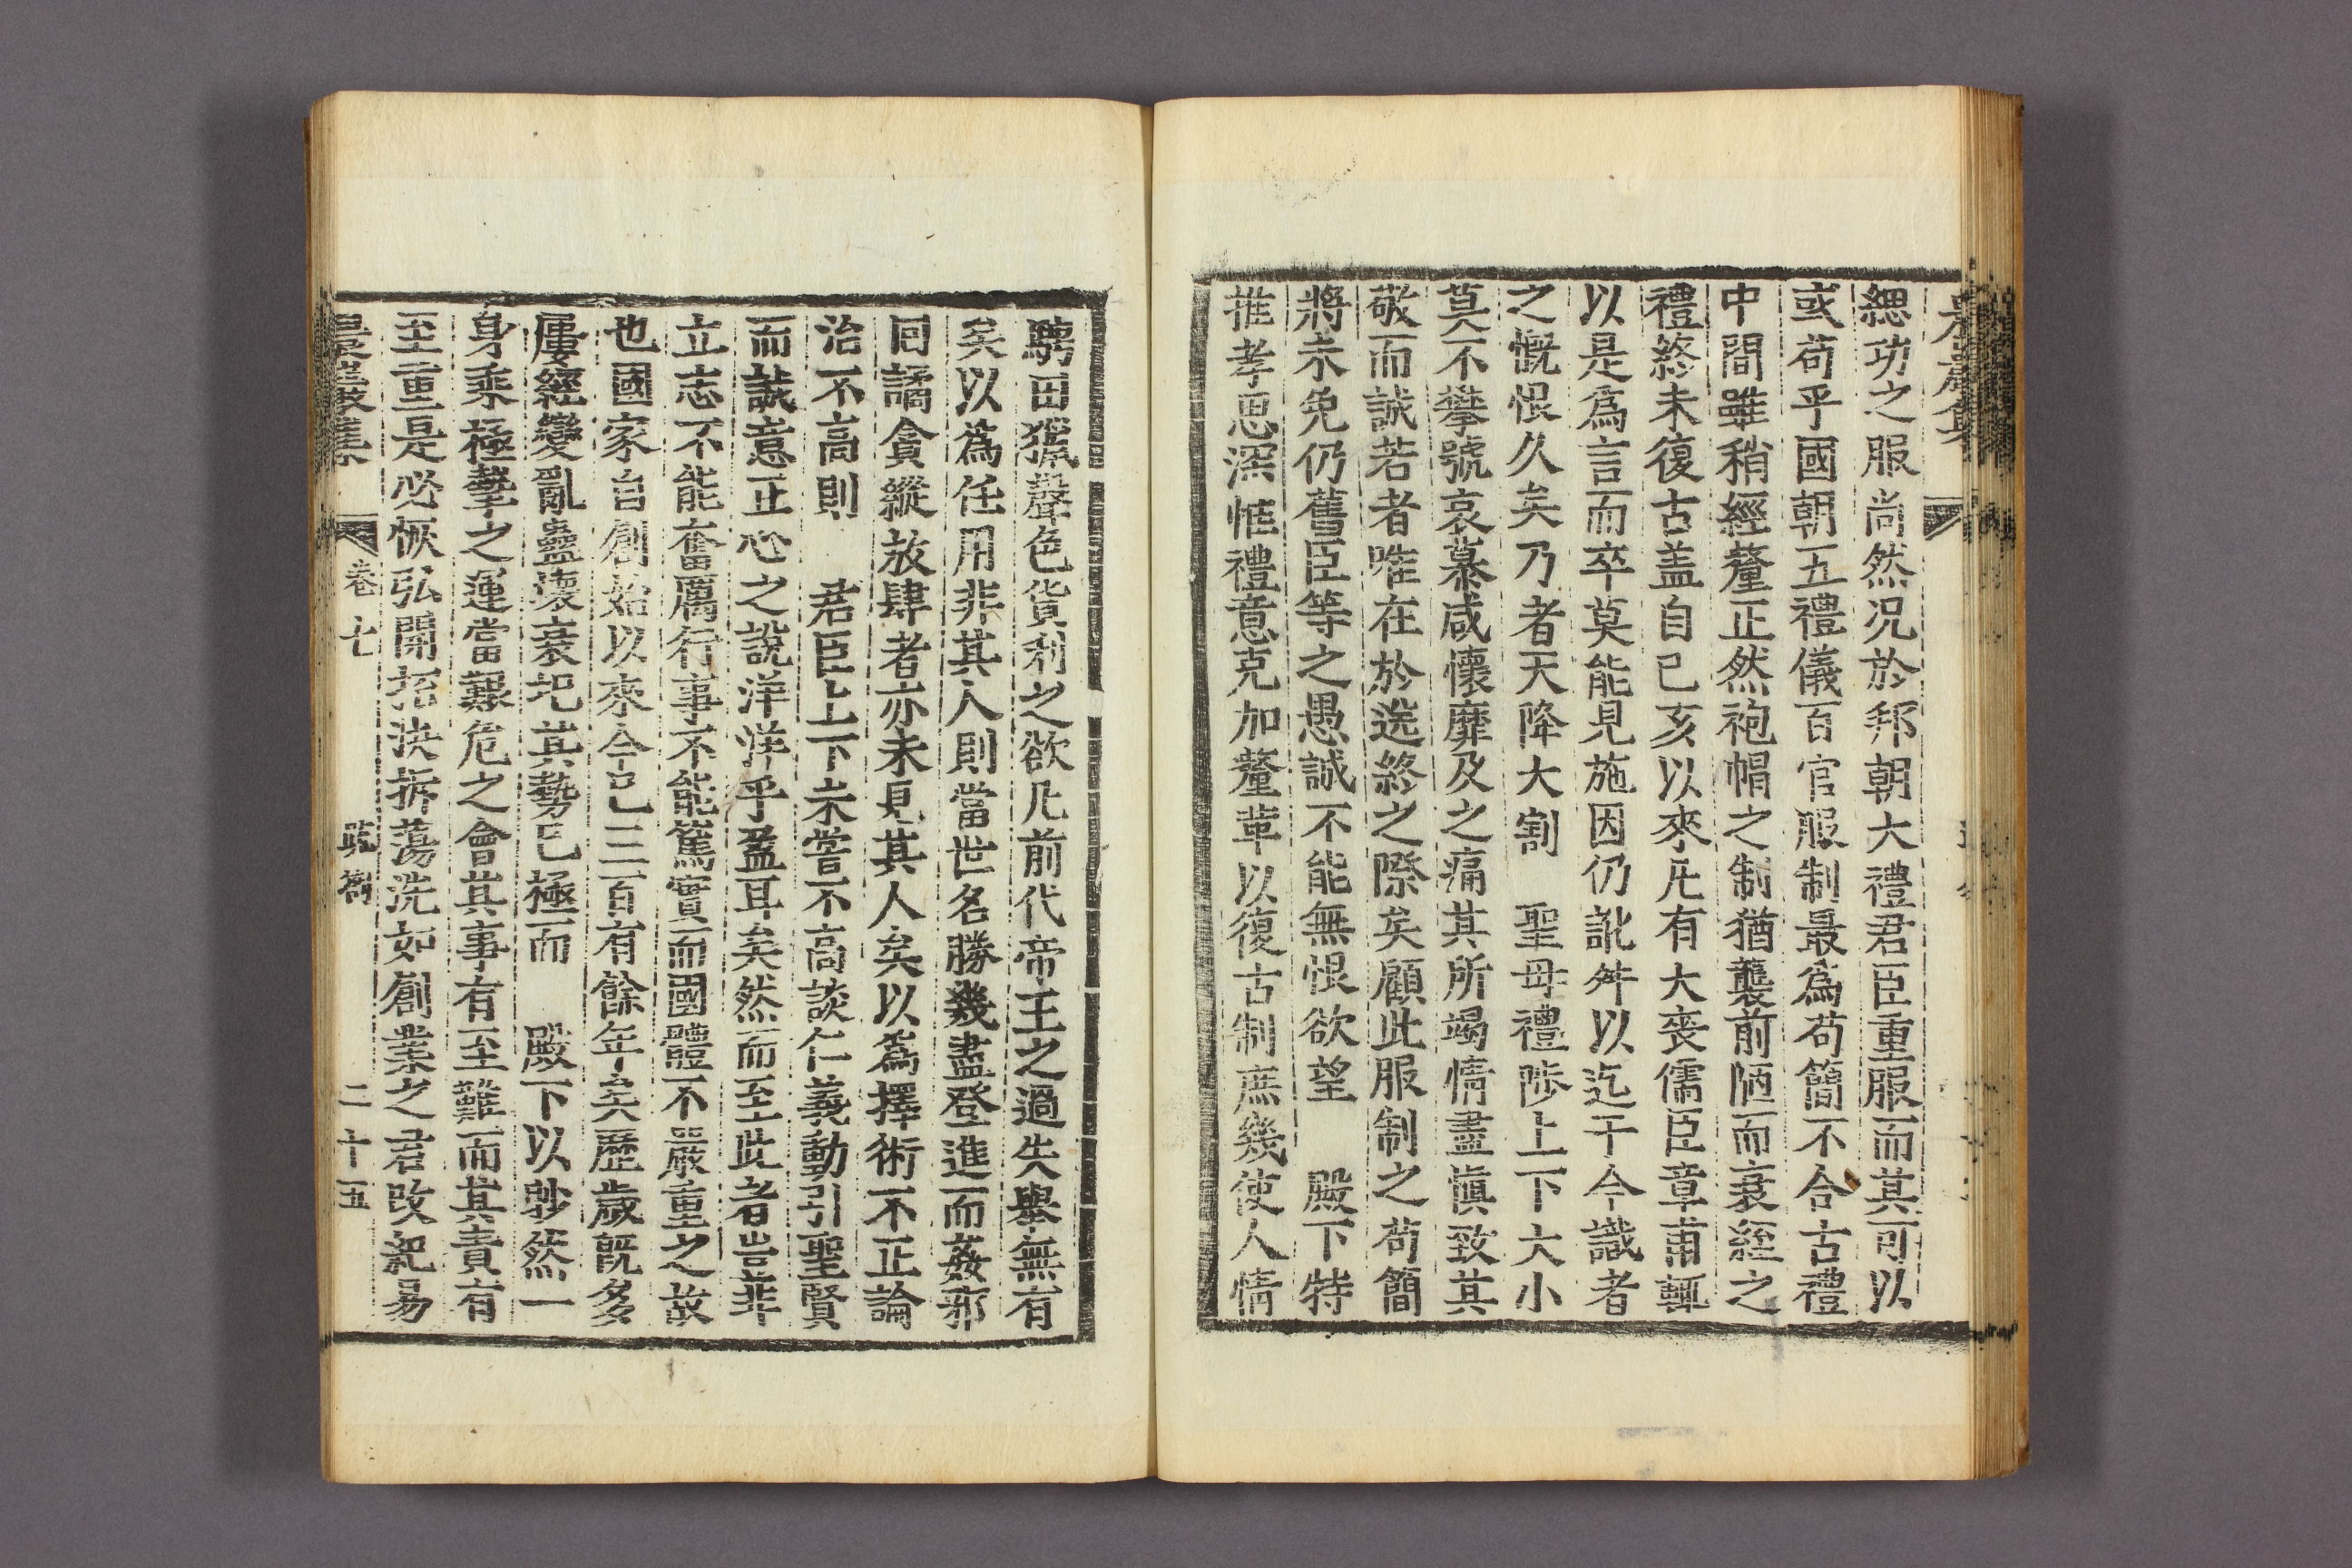 緦功之服尚然况於邦朝大禮君臣重服而其可以
或苟乎國朝五禮儀百官服制最爲苟簡不合古禮
中間雖稍經釐正然袍帽之制猶襲前陋而衰絰之
禮終未復古盖自己亥以來凡有大喪儒臣章甫輒
以是爲言而卒莫能見施因仍訛舛以迄于今識者
之慨恨久矣乃者天降大割 聖母禮陟上下大小
莫不攀號哀慕咸懷靡及之痛其所竭情盡愼致其
敬而誠若者唯在於送終之際矣顧此服制之苟簡
將未免仍舊臣等之愚誠不能無恨欲望 殿下特
推孝思深惟禮意克加釐革以復古制庶幾使人情
騁田獵聲色貨利之欲凡前代帝王之過失擧無有
矣以爲任用非其人則當世名勝幾盡登進而姦邪
回譎貪縱放肆者亦未見其人矣以爲擇術不正論
治不高則 君臣上下未嘗不高談仁義動引聖賢
而誠意正心之說洋洋乎盈耳矣然而至此者豈非
立志不能奮厲行事不能篤實而國體不嚴重之故
也國家自創始以來今已三百有餘年矣歷歲旣多
屢經變亂蠱壞衰圮其勢已極而 殿下以眇然一
身乘極弊之運當艱危之會其事有至難而其責有
至重是必恢弘開拓决拆蕩洗如創業之君改紀易
卷七
疏箚
二十五